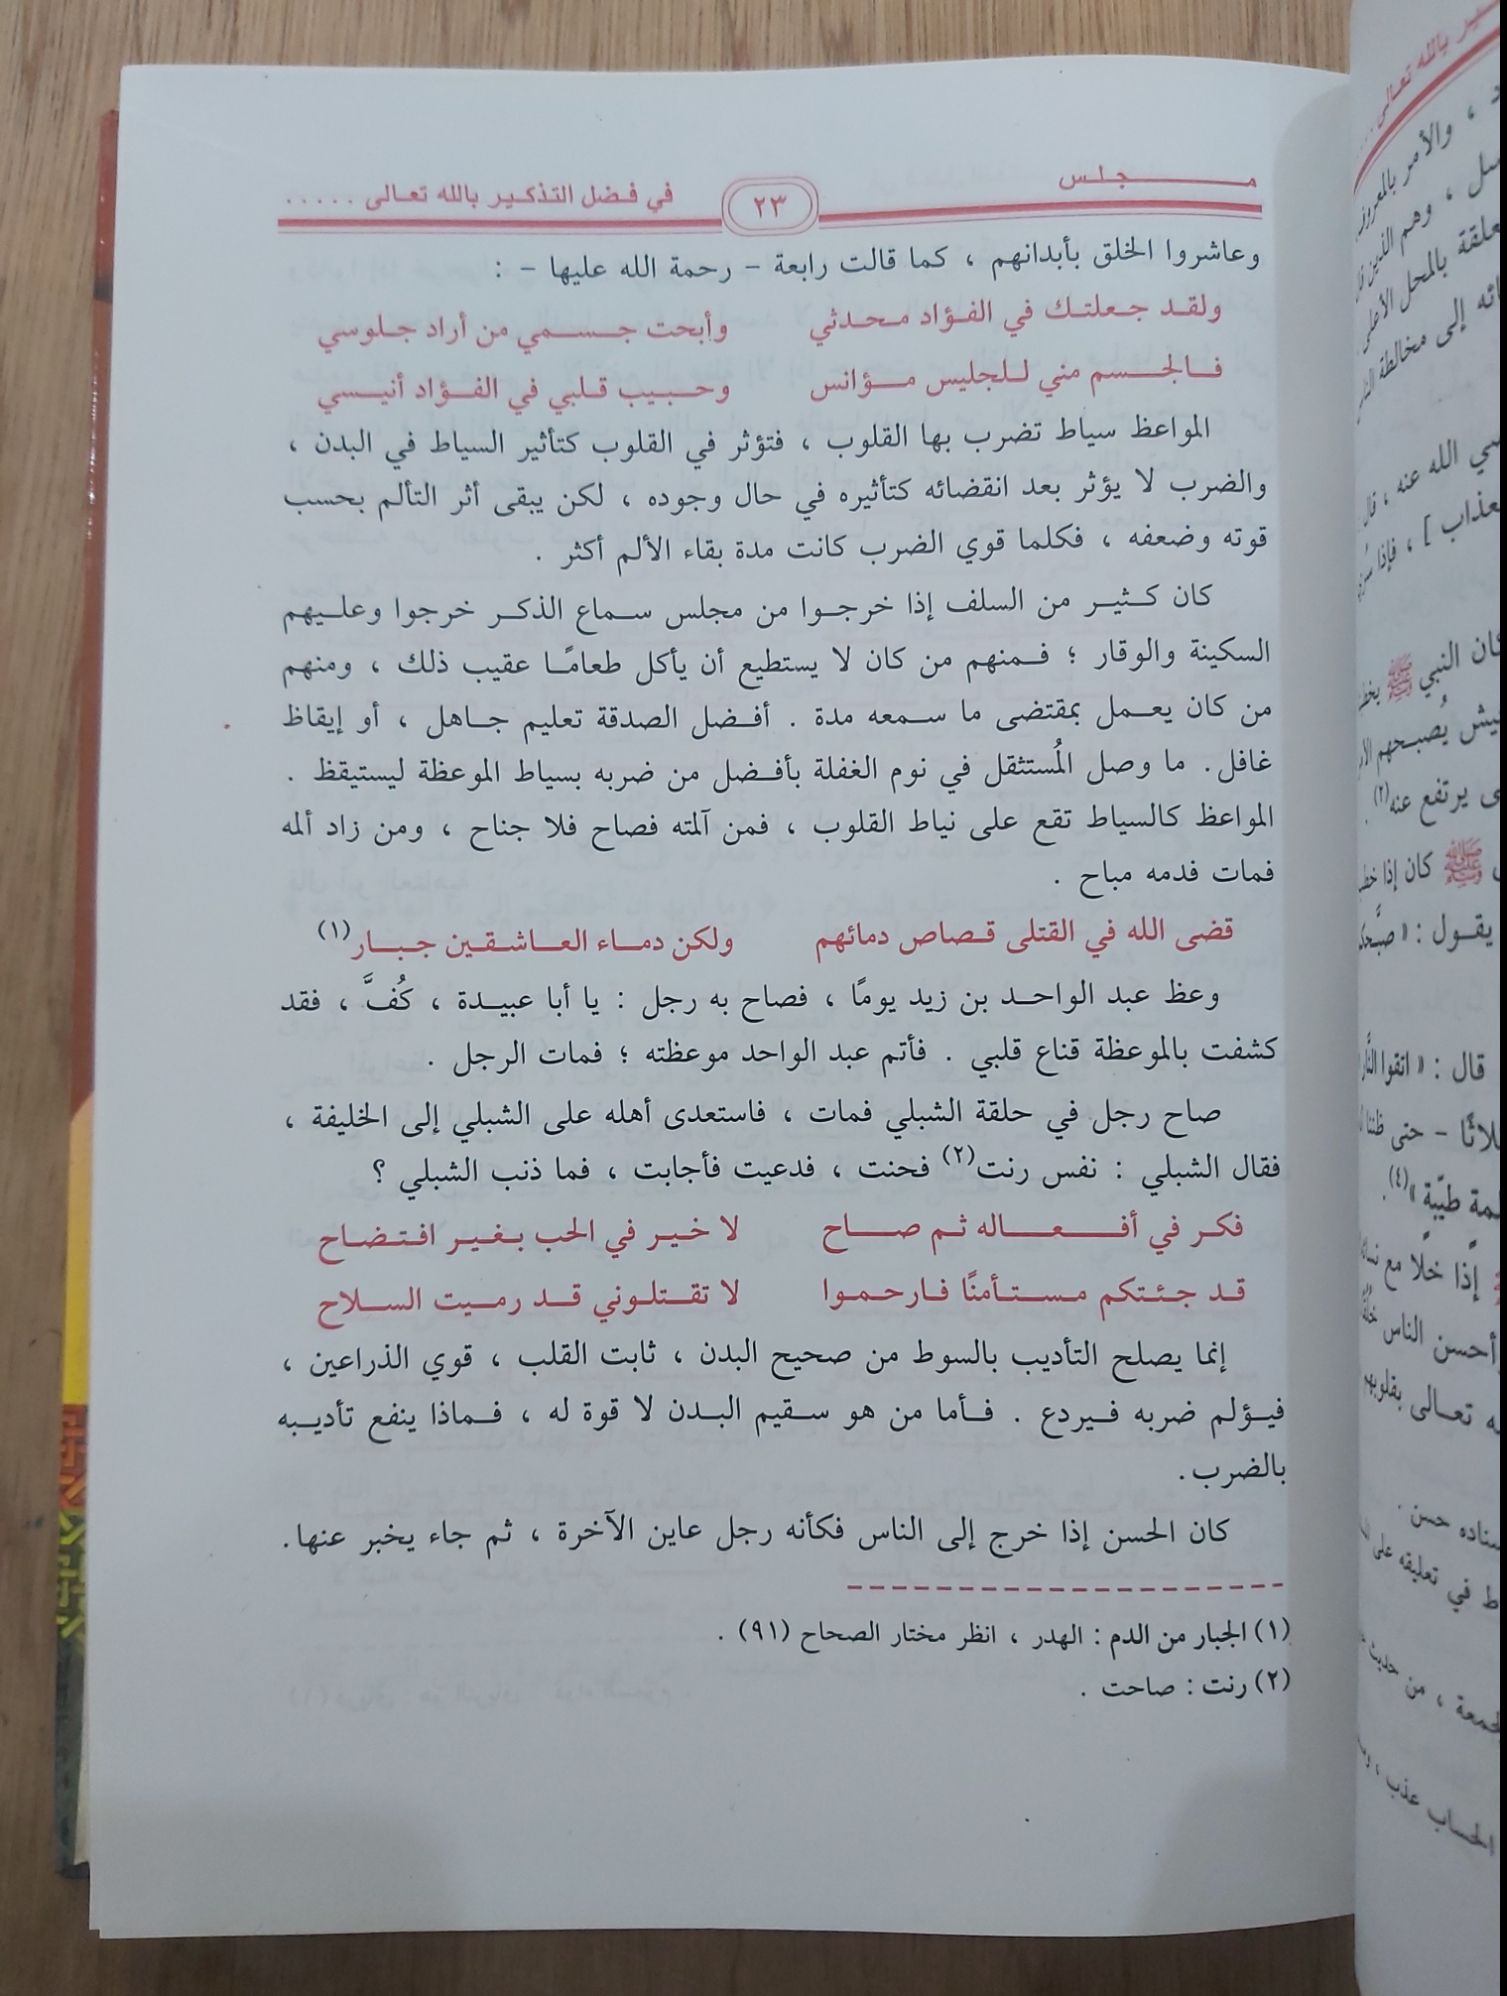 مجلس ٢٣ في فضل التذكير بالله تعالى .....
وعاشروا الخلق بأبدانهم ، كما قالت رابعة – رحمة الله عليها – :
ولقد جعلتك في الفؤاد محدثي وأبحت جسمي من أراد جلوسي
فالجسم مني للجليس مؤانس وحبيب قلبي في الفؤاد أنيسي
المواعظ سياط تضرب بها القلوب ، فتؤثر في القلوب كتأثير السياط في البدن ،
والضرب لا يؤثر بعد انقضائه كتأثيره في حال وجوده ، لكن يبقى أثر التألم بحسب
قوته وضعفه ، فكلما قوي الضرب كانت مدة بقاء الألم أكثر .
كان كثير من السلف إذا خرجوا من مجلس سماع الذكر خرجوا وعليهم
السكينة والوقار ؛ فمنهم من كان لا يستطيع أن يأكل طعامًا عقيب ذلك ، ومنهم
من كان يعمل بمقتضى ما سمعه مدة . أفضل الصدقة تعليم جاهل ، أو إيقاظ
غافل. ما وصل المُستثقل في نوم الغفلة بأفضل من ضربه بسياط الموعظة ليستيقظ .
المواعظ كالسياط تقع على نياط القلوب ، فمن آلمته فصاح فلا جناح ، ومن زاد ألمه
فمات فدمه مباح .
قضى الله في القتلى قصاص دمائهم ولكن دماء العاشقين جبار(١)
وعظ عبد الواحد بن زيد يومًا ، فصاح به رجل : يا أبا عبيدة ، كُفَّ ، فقد
كشفت بالموعظة قناع قلبي . فأتم عبد الواحد موعظته ؛ فمات الرجل .
صاح رجل في حلقة الشبلي فمات ، فاستعدى أهله على الشبلي إلى الخليفة ،
فقال الشبلي : نفس رنت(٢) فحنت ، فدعيت فأجابت ، فما ذنب الشبلي ؟
فكر في أفعاله ثم صاح لا خير في الحب بغير افتضاح
قد جئتكم مستأمنًا فارحموا لا تقتلوني قد رميت السلاح
إنما يصلح التأديب بالسوط من صحيح البدن ، ثابت القلب ، قوي الذراعين ،
فيؤلم ضربه فيردع . فأما من هو سقيم البدن لا قوة له ، فماذا ينفع تأديبه
بالضرب.
كان الحسن إذا خرج إلى الناس فكأنه رجل عاين الآخرة ، ثم جاء يخبر عنها.
(١) الجبار من الدم : الهدر ، انظر مختار الصحاح (٩١) .
(٢) رنت : صاحت .
بالله تعالى
، والأمر بالمعروف
، وهم الذين
بالمحل الأعلى
إلى مخالطة
الله عنه ، قال
] ، فإذا
كان النبي ﷺ
يُصبحهم
يرتفع عنه(٢)
ﷺ كان إذا
يقول : «
قال : « اتقوا النار
– حتى ظننا
طيّبة »(٤).
إذا خلا مع
أحسن الناس
تعالى بقلوبهم
حسن .
في تعليقه على
، من حديث
عذب ،